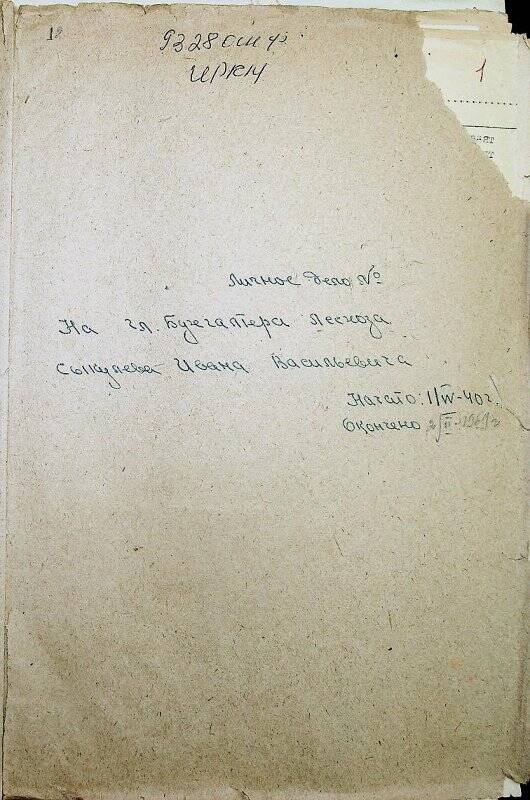 19
1
ИРКМ
Личное дело №
На гл. Бухгалтера Лесхоза
Сыкулева Ивана Васильевича
Начато: 1/IV-40г.
Окончено